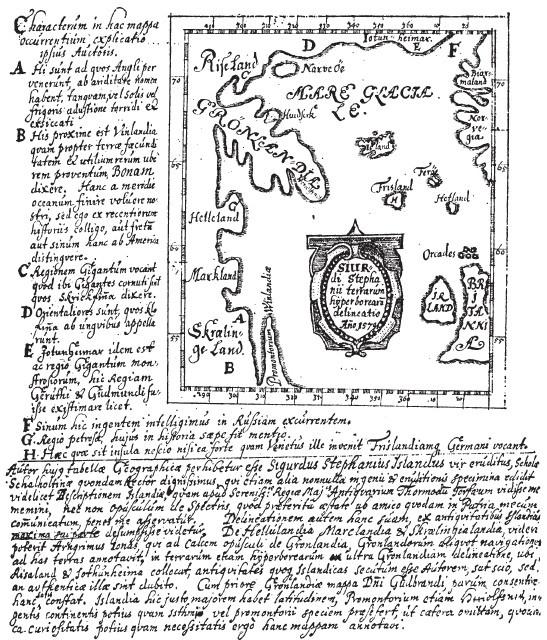 Characterum in hac mappa
occurrentium explicatio
ipsius Auctoris.
A Hi sunt ad quos Angli per
venerunt, ab ariditate nomen
habent, tanquam vel Solis vel
frigoris adustione torridi et
exsiccati
B His proxime est Vinlandia
quam propter terræ fæcundi
tatem et utilium rerum ube
rem proventum, Bonam
dixere. Hanc a meridie
oceanum finire voluere no
stri, sed ego ex recentiorum
historiis colligo, aut fretum
aut sinum hanc ab America
distinguere.
C Regionem Gigantum vocant
quod ibi Gigantes cornuti sint
quos Skrickfinna dixere.
D Orientaliores sunt, quos klo
fina ab unguibus appella
runt.
E Jotunheimar idem est
ac regio Gigantum mon
strosorum, hic Regiam
Geruthi & Gudmundi fu
isse existimare licet.
F Sinum hic ingentem intelligimus in Russiam excurrentem.
G Regio petrosa, hujus in historia sæpe fit mentio.
H Hæc quæ sit insula nescio nisi ea forte quam Venetus ille invenit Frislandiamq Germani vocant.
310 320 330 340 350 10 20
D Jotun-heimar. E F
Riseland
C
Narve Oe
Biar-
maland
70
MARE GLACIA
LE.
Norve-
gia
Huidserk
GRÖNLANDIA
65
Island
Frisland
H
Ferö
Hetland
G
Helleland
60
Orcades
Markland
SIUR-
di Stepha
nii terrarum
hyperborearū
delineatio
Año 1570
IR
LAND
BRI
TANNI
A
A
Skraling-
ge Land
B
Promontorium Winlandiæ
55
Autor hujus tabellæ Geographicæ perhibetur esse Sigurdus Stephanius Islandus vir eruditus, Scholæ
Schalholtinæ quondam Rector dignissimus, qui etiam alia nonnulla ingenii & eruditionis specimina edidit
videlicet Descriptionem Islandiæ quam apud Sereniss: Regiæ Maj: Antiqvarium Thormodu Torfæum vidisse me
memini, nec non opusculum de Spectris, quod præterita æstate ab amico quodam in Patria mecum
comunicatum, penes me asservatur. Delineationem autem hanc suam, ex antiqvitatibus Islandicis
maxima sui parte desumpsisse videtur. De Helleulandia, Marclandia & Skrælingialandia, videri
poterit Arngrimus Jonas, qui ad calcem opusculi de Gronlandia, Gronlandorum aliquot navigationes
ad has terras annotavit, in terrarum etiam hyperborearum ex ultra Gronlandiam delineatione, ubi
Risaland & Jothunheimæ collocat, antiqvitates quoq Islandicas secutum esse Autorem, sat scio, sed
an authenticæ illæ sint dubito. Cum priore Gronlandiæ mappa Dni Gudbrandi parum consentire
hanc, constat. Islandia hic justo majorem habet latitudinem, Promontorium etiam Huirlfsnis, in-
gentis continentis potius quam Isthmi vel promontorii speciem præsefert, ut cætera omittam, quom
ca curiositatis potius quam necessitatis ergo hanc mappam annotavi.